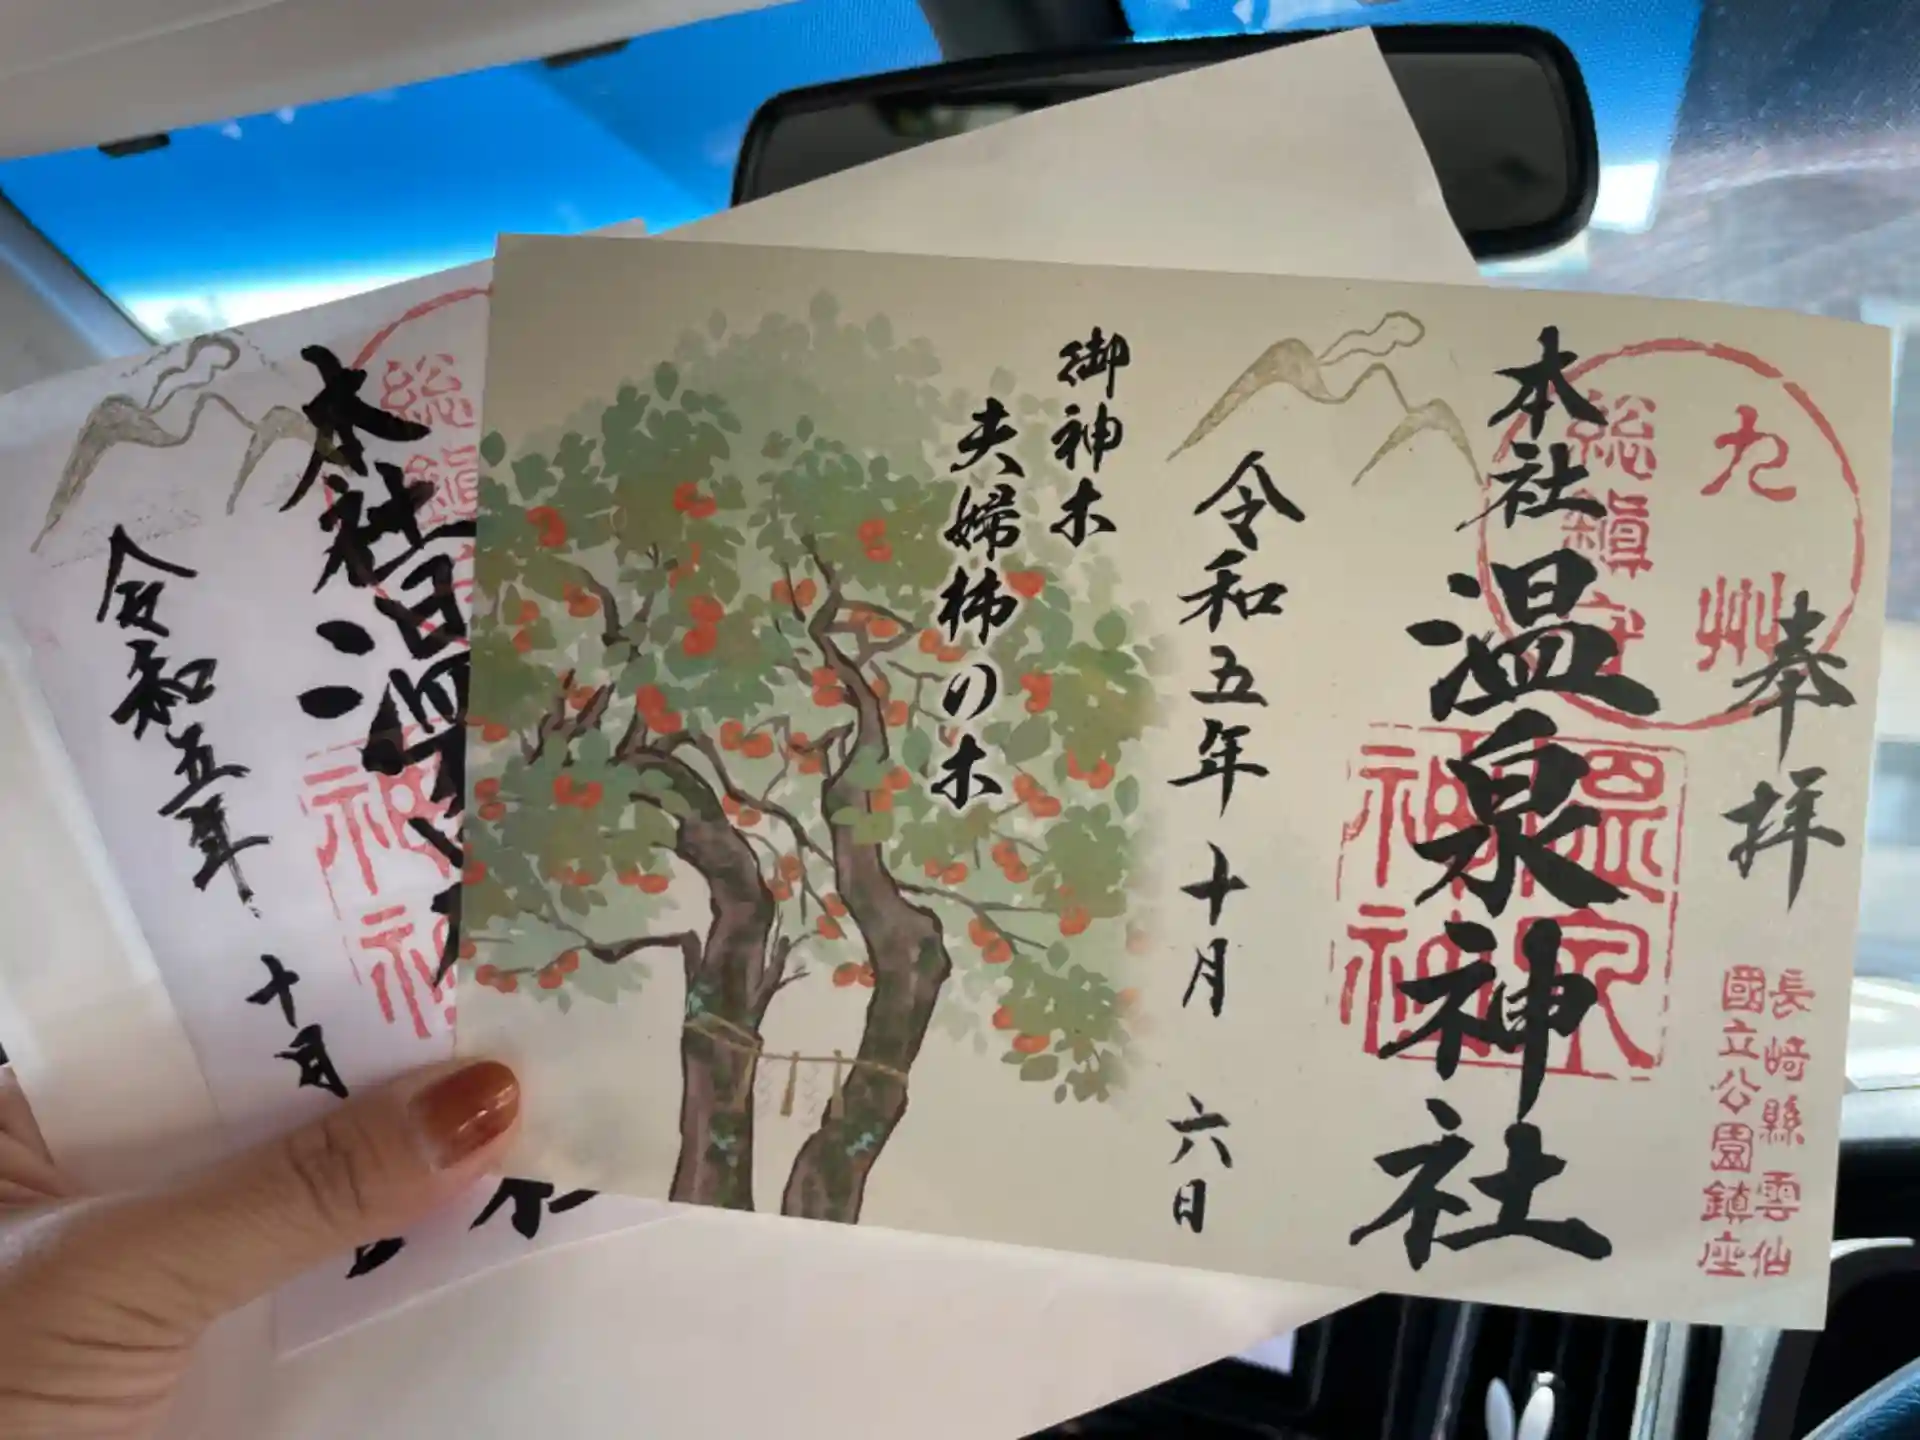 奉拝
九州
総鎮守
長崎縣雲仙
國立公園鎮座
本社
温泉神社
令和五年十月六日
御神木
夫婦柿の木
総鎮
本社
温
令和五年
十月